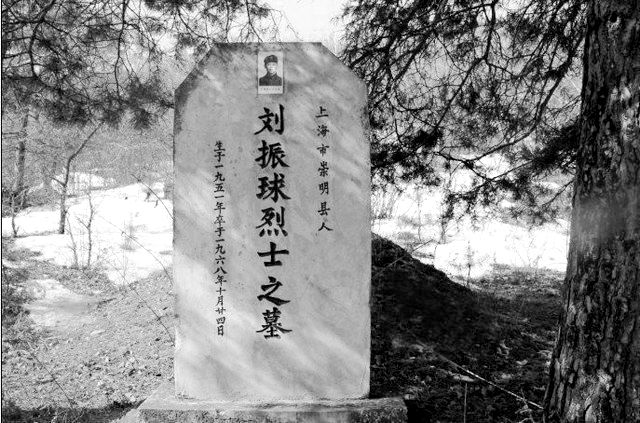 上海市崇明县人
刘振球烈士之墓
生于一九五一年卒于一九六八年十月廿四日